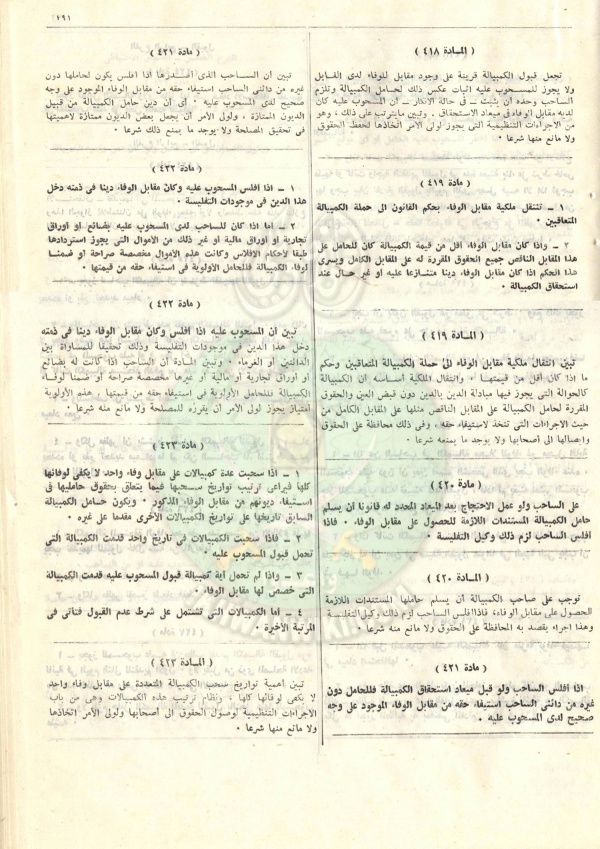 ٢٩١
( المادة ٤١٨ )
تجعل قبول الكمبيالة قرينة على وجود مقابل للوفاء لدى القابل
ولا يجوز للمسحوب عليه اثبات عكس ذلك لحامل الكمبيالة وتلزم
الساحب وحده أن يثبت ـ فى حالة الانكار ـ ان المسحوب عليه كان
لديه مقابل الوفاء فى ميعاد الاستحقاق . وتبين مايترتب على ذلك ، وهو
من الاجراءات التنظيمية التى يجوز لولى الأمر اتخاذها لحفظ الحقوق
ولا مانع منها شرعا ٠
( مادة ٤١٩ )
١ ـ تنتقل ملكية مقابل الوفاء بحكم القانون الى حملة الكمبيالة
المتعاقبين ٠
٢ ـ واذا كان مقابل الوفاء أقل من قيمة الكمبيالة كان للحامل على
هذا المقابل الناقص جميع الحقوق المقررة له على المقابل الكامل ويسرى
هذا الحكم اذا كان مقابل الوفاء دينا متنازعا عليه أو غير حال عند
استحقاق الكمبيالة ٠
( المادة ٤١٩ )
تبين انتقال ملكية مقابل الوفاء الى حملة الكمبيالة المتعاقبين وحكم
ما اذا كان أقل من قيمتها ، وانتقال الملكية أساسه أن الكمبيالة
كالحوالة التى يجوز فيها مبادلة الدين بالدين دون قبض العين والحقوق
المقررة لحامل الكمبيالة على المقابل الناقص مثلها على المقابل الكامل من
حيث الاجراءات التى تتخذ لاستيفاء حقه ، وفى ذلك محافظة على الحقوق
وايصالها الى أصحابها ولا يوجد ما يمنعه شرعا ٠
( مادة ٤٢٠ )
على الساحب ولو عمل الاحتجاج بعد الميعاد المحدد له قانونا أن يسلم
حامل الكمبيالة المستندات اللازمة للحصول على مقابل الوفاء ٠ فاذا
أفلس الساحب لزم ذلك وكيل التفليسة ٠
( المادة ٤٢٠ )
توجب على صاحب الكمبيالة أن يسلم حاملها المستندات اللازمة
للحصول على مقابل الوفاء، فاذا أفلس الساحب لزم ذلك وكيل التفليسة
وهذا اجراء يقصد به المحافظة على الحقوق ولا مانع منه شرعا ٠
( مادة ٤٢١ )
اذا أفلس الساحب ولو قبل ميعاد استحقاق الكمبيالة فللحامل دون
غيره من دائنى الساحب استيفاء حقه من مقابل الوفاء الموجود على وجه
صحيح لدى المسحوب عليه ٠
( مادة ٤٢١ )
تبين أن الساحب الذى أصدرها اذا أفلس يكون لحاملها دون
غيره من دائنى الساحب استيفاء حقه من مقابل الوفاء الموجود على وجه
صحيح لدى المسحوب عليه ٠ أى أن دين حامل الكمبيالة من قبيل
الديون الممتازة ، ولولى الأمر أن يجعل بعض الديون ممتازة لأهميتها
فى تحقيق المصلحة ولا يوجد ما يمنع ذلك شرعا ٠
( مادة ٤٢٢ )
١ ـ اذا أفلس المسحوب عليه وكان مقابل الوفاء دينا فى ذمته دخل
هذا الدين فى موجودات التفليسة ٠
٢ ـ أما اذا كان للساحب لدى المسحوب عليه بضائع أو أوراق
تجارية أو أوراق مالية أو غير ذلك من الأموال التى يجوز استردادها
طبقا لأحكام الافلاس وكانت هذه الأموال مخصصة صراحة أو ضمنا
لوفاء الكمبيالة فللحامل الأولوية فى استيفاء حقه من قيمتها ٠
( مادة ٤٢٢ )
تبين أن المسحوب عليه اذا أفلس وكان مقابل الوفاء دينا فى ذمته
دخل هذا الدين فى موجودات التفليسة وذلك تحقيقا للمساواة بين
الدائنين أو الغرماء ٠ وتبين المادة أن الساحب اذا كانت له بضائع
أو أوراق تجارية أو مالية أو غيرها مخصصة صراحة أو ضمنا لوفاء
الكمبيالة فللحامل الأولوية فى استيفاء حقه من قيمتها ، هذه الأولوية
امتياز يجوز لولى الأمر أن يقرره للمصلحة ولا مانع منه شرعا ٠
( مادة ٤٢٣ )
١ ـ اذا سحبت عدة كمبيالات على مقابل وفاء واحد لا يكفى لوفائها
كلها فيراعى ترتيب تواريخ سحبها فيما يتعلق بحقوق حامليها فى
استيفاء ديونهم من مقابل الوفاء المذكور ٠ ويكون حامل الكمبيالة
السابق تاريخها على تواريخ الكمبيالات الأخرى مقدما على غيره ٠
٢ ـ فاذا سحبت الكمبيالات فى تاريخ واحد قدمت الكمبيالة التى
تحمل قبول المسحوب عليه ٠
٣ ـ واذا لم تحمل أية كمبيالة قبول المسحوب عليه قدمت الكمبيالة
التى خصص لها مقابل الوفاء ٠
٤ ـ أما الكمبيالات التى تشتمل على شرط عدم القبول فتأتى فى
المرتبة الأخيرة ٠
( المادة ٤٢٣ )
تبين أهمية تواريخ سحب الكمبيالة المتعددة على مقابل وفاء واحد
لا يكفى لوفائها كلها ٠ ونظام ترتيب هذه الكمبيالات وهى من باب
الاجراءات التنظيمية لوصول الحقوق الى أصحابها ولولى الأمر اتخاذها
ولا مانع منها شرعا ٠